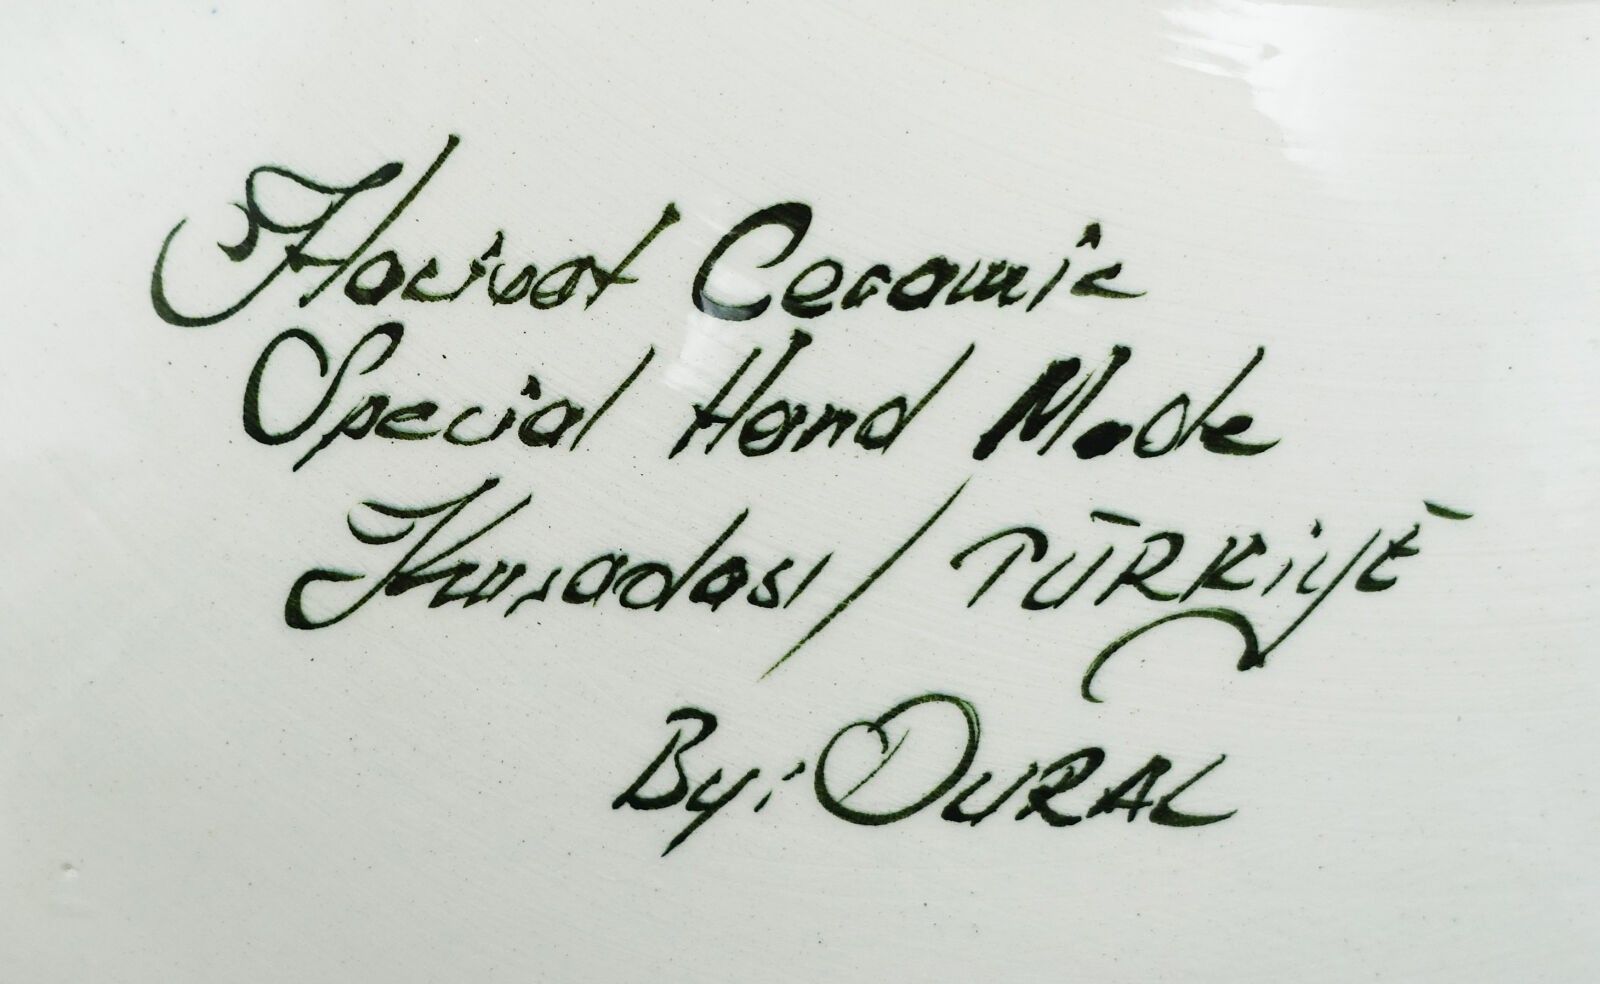 Hacivat Ceramic
Special Hand Made
Kuşadası / TÜRKiYE
By: DURAL